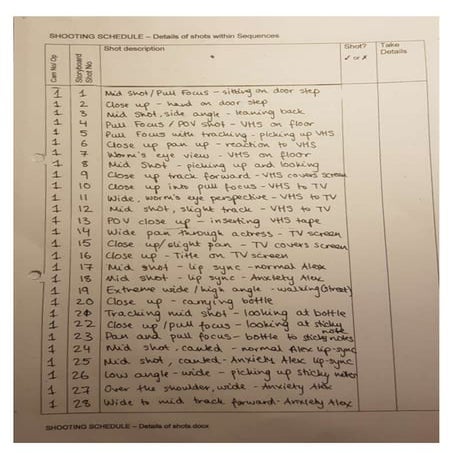 SHOOTING SCHEDULE – Details of shots within Sequences
Cam No/ Op Storyboard Shot No Shot description Shot? ✓ or ✗ Take Details
1 1 Mid Shot/Pull Focus - sitting on door step
1 2 Close up - hand on door step
1 3 Mid Shot, side angle - leaning back
1 4 Pull Focus / POV shot - VHS on floor
1 5 Pull Focus with tracking - picking up VHS
1 6 Close up pan up - reaction to VHS
1 7 Worm's eye view - VHS on floor
1 8 Mid Shot - picking up and looking
1 9 Close up track forward - VHS covers screen
1 10 Close up into pull focus - VHS to TV
1 11 Wide, worm's eye perspective - VHS to TV
1 12 Mid shot, slight track - VHS to TV
1 13 POV close up - inserting VHS tape
1 14 Wide pan through actress - TV screen
1 15 Close up/slight pan - TV covers screen
1 16 Close up - Title on TV screen
1 17 Mid shot - lip sync - normal Alex
1 18 Mid shot - lip sync - Anxiety Alex
1 19 Extreme wide/high angle - walking (street)
1 20 Close up - carrying bottle
1 21 Tracking mid shot - looking at bottle
1 22 Close up/pull focus - looking at sticky note
1 23 Pan and pull focus - bottle to sticky notes
1 24 Mid shot, canted - normal Alex lip-sync
1 25 Mid shot, canted - Anxiety Alex lip-sync
1 26 Low angle - wide - picking up sticky notes
1 27 Over the shoulder, wide - Anxiety Alex
1 28 Wide to mid track forward - Anxiety Alex
SHOOTING SCHEDULE – Details of shots.docx